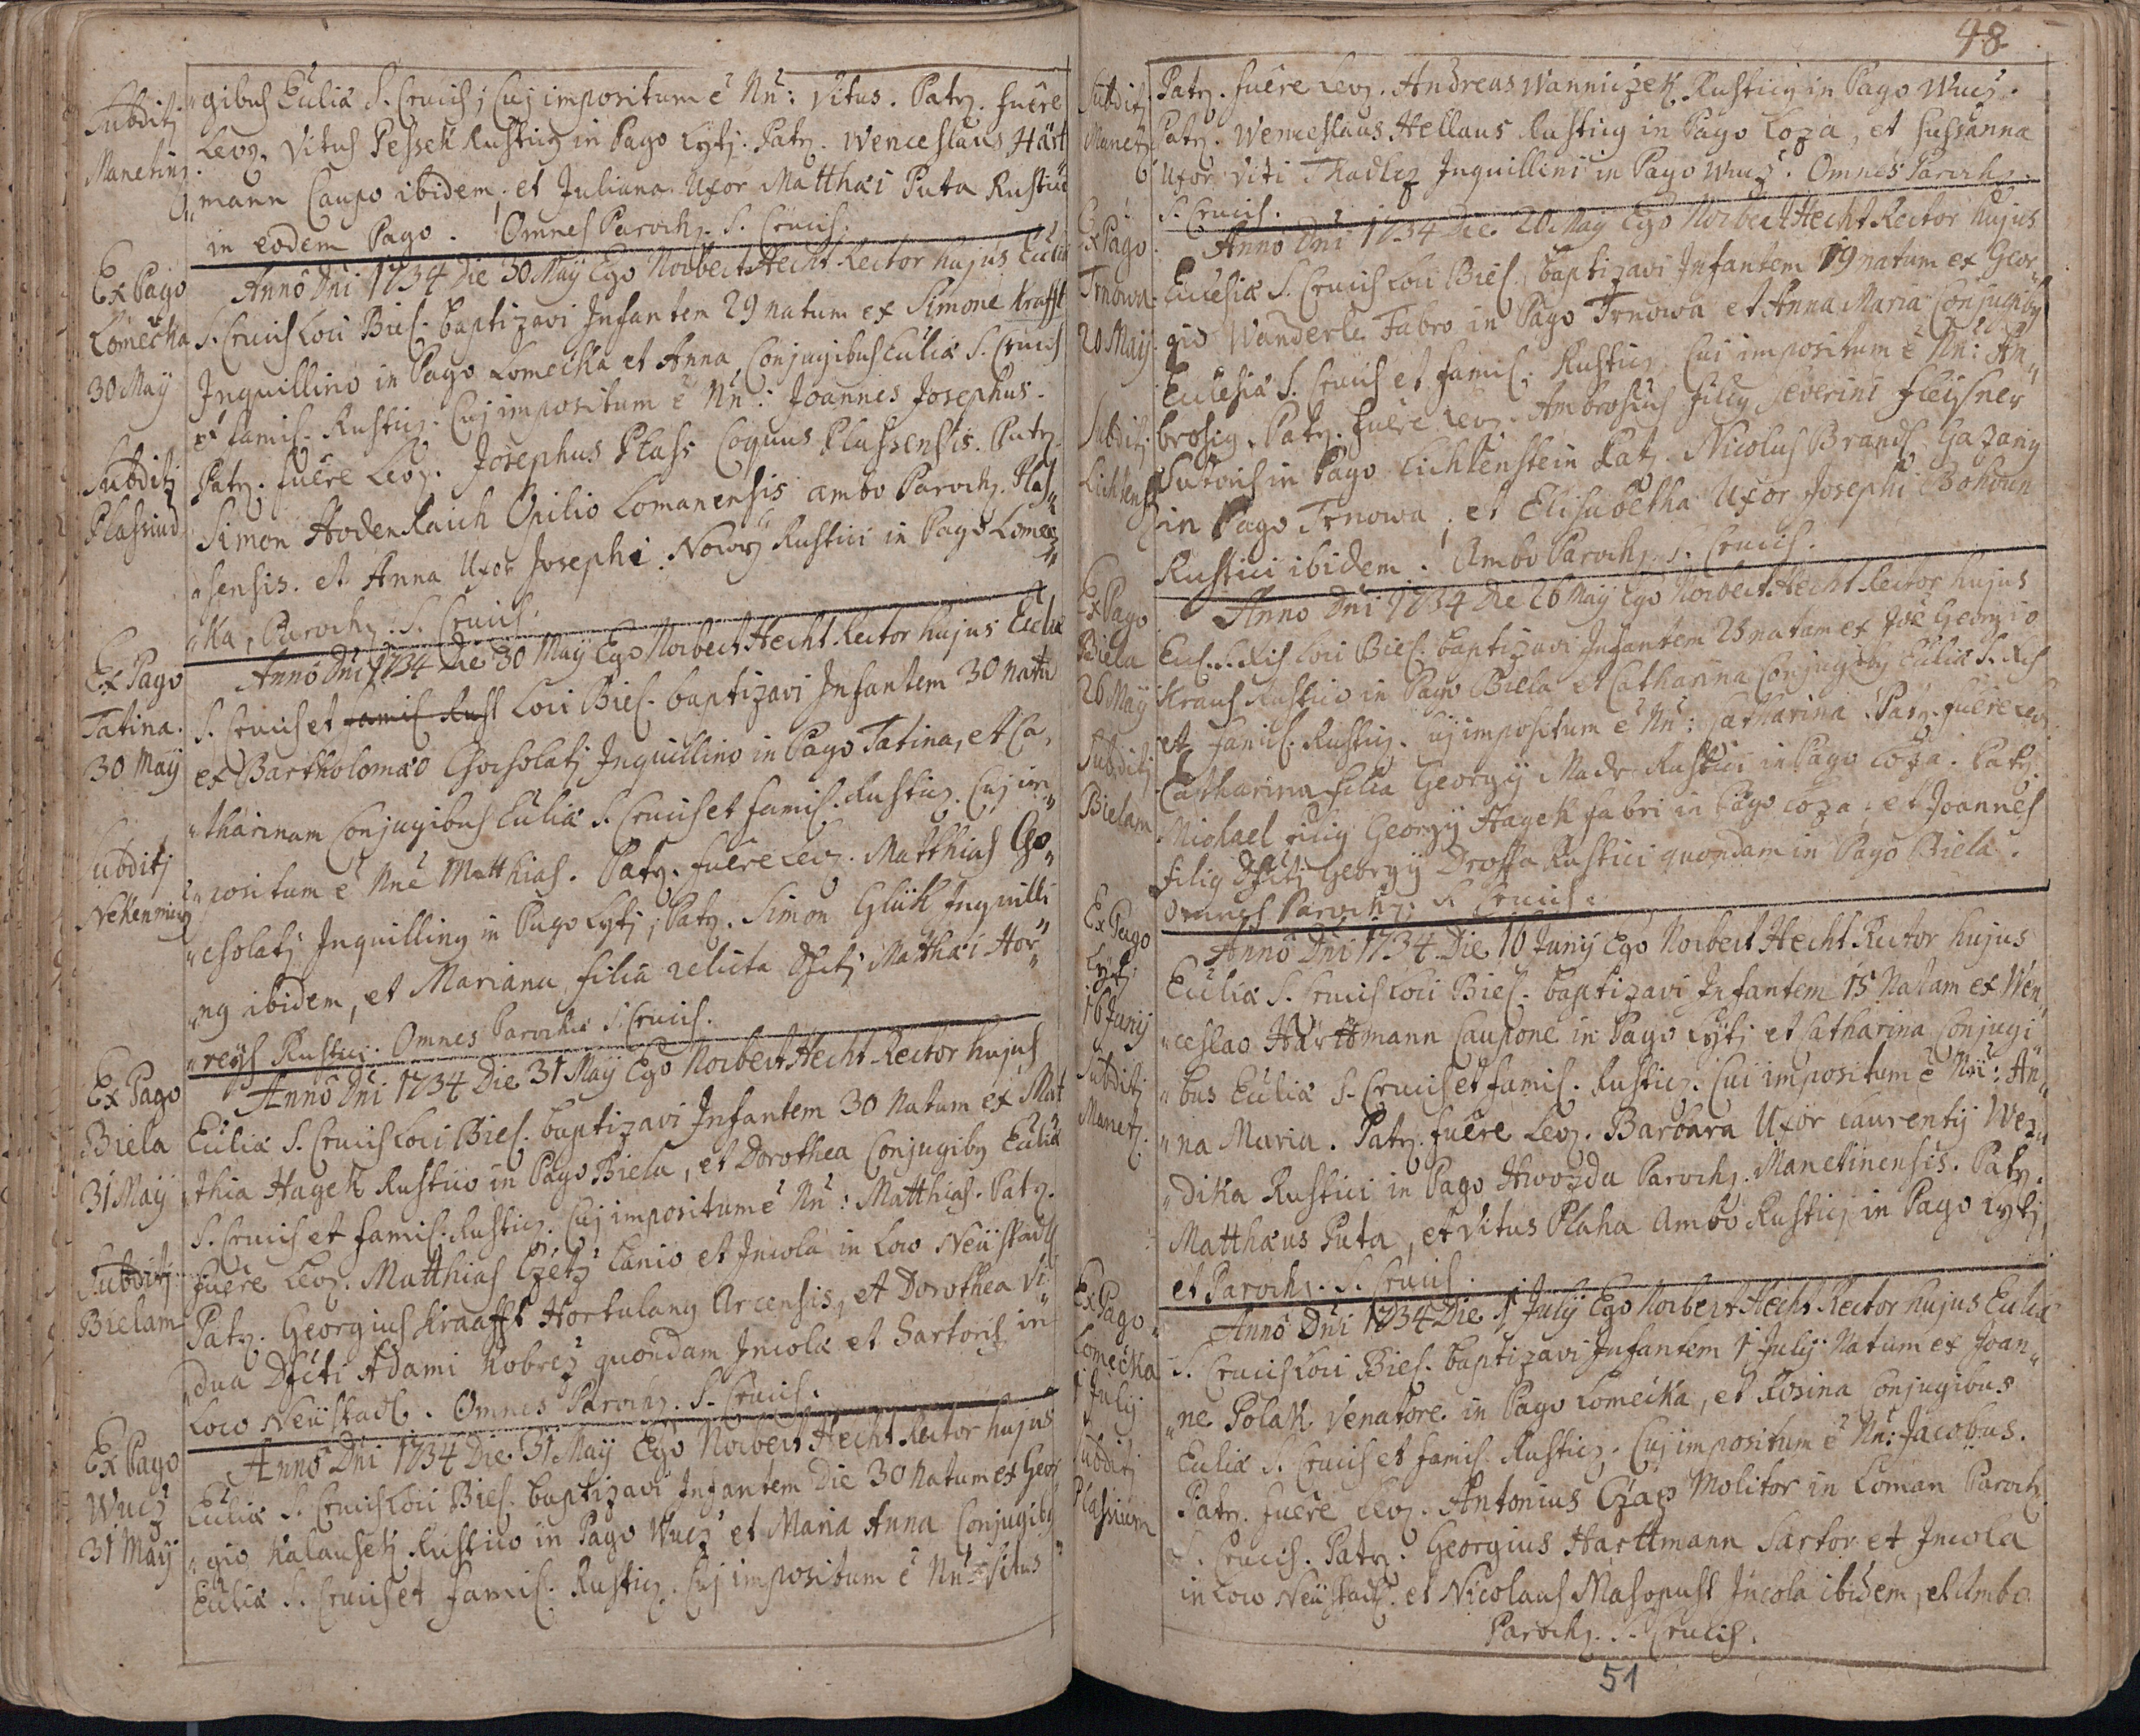 Subditj
Manetinz.
„gibus Eccliæ S. Crucis; Cuj impositum ē Nn̄: Vitus. Patz. fuêre
Levz. Vitus Pessek Rusticg in Pago Lytj. Patz. Wenceslaus Hart
„mann Caupo ibidem, et Juliana Uxor Matthæi Puta Rustici
in eodem Pago. Omnes Parochz. S. Crucis.
Ex Pago
Lomecka
30 May
Subditj
Plassius
Annô Dn̄i 1734 Die 30 Maÿ Ego Norbert Hecht Rector hujus Eccliæ
S. Crucis Loci Bies. baptizavi Infantem 29 natum ex Simone Krafft
Inquillino in Pago Lomecka et Anna, Conjugibus Eccliæ S. Crucis
et famil. Rusticz. Cuj impositum ē Nn̄: Joannes Josephus.
Patz. fuêre Levz. Josephus Plass Coquus Plassensis. Patz.
Simon Hodenkaich Opilio Lomanensis ambo Parochz. Plas„
„sensis. et Anna Uxor Josephi Nowÿ Rustici in Pago Lomec„
„ka, Parochz. S. Crucis.
Ex Pago
Tatina.
30 Maÿ
Subditj
Nekenmicz
Annô Dn̄i 1734 Die 30 Maÿ Ego Norbert Hecht Rector hujus Eccliæ
S. Crucis et famil Rust Loci Bies. baptizavi Infantem 30 natū
ex Bartholomæo Chocholatj Inquillino in Pago Tatina, et Ca„
„tharinam Conjugibus Eccliæ S. Crucis et famil. Rusticz. Cuj im„
„positum ē Nnē Matthias. Patz. fuêre Levz. Matthias Cho„
„cholatj Inquilling in Pago Lytj; Patz. Simon Glük Inquilli
„ng ibidem, et Mariana filia relicta Dfctj Matthæi Hor„
„reÿs Rustici. Omnes Parochiæ S. Crucis.
Ex Pago
Biela
31 Maÿ
Subditj
Bielam
Annô Dn̄i 1734 Die 31 Maÿ Ego Norbert Hecht Rector hujus
Eccliæ S. Crucis Loci Bies. baptizavi Infantem 30 Natum ex Mat
„thia Hagek Rustico in Pago Biela, et Dorothea Conjugibg Eccliæ
S. Crucis et famil. Rusticz. Cuj impositum ē Nn̄: Matthias. Patz.
fuêre Levz. Matthias Czetz Lanio et Incola in Loco Neüstadtl
Patz. Georgius Kraafft Hortulang Arcensis, et Dorothea Vi„
„dua Dfcti Adami Kobrez quondam Incolæ et Sartoris in
Loco Neüstadtl. Omnes Parochz. S. Crucis.
Ex Pago
Wucz
31 Maÿ
Annô Dn̄i 1734 Die 31 Maÿ Ego Norbert Hecht Rector hujus
Eccliæ S. Crucis Loci Bies. baptizavi Infantem Die 30 Natum ex Geor
„gio Kalausetj Rustico in Pago Wucz et Maria Anna Conjugibg
Eccliæ S. Crucis et famil. Rusticz. Cuj impositum ē Nn̄: Vitus
48
Subditj
Manetz
Patz. fuêre Levz. Andreas Wanniczek Rusticg in Pago Wucz.
Patz. Wenceslaus Hellaus Rusticg in Pago Loza, et Sussanna
Uxor Viti Thadlez Inquillini in Pago Wucz. Omnes Parochz.
S. Crucis.
Ex Pago
Trnowa
20 Maij
Subditj
Lichtens
Annô Dn̄i 1734 Die 20 Maÿ Ego Norbert Hecht Rector hujus
Ecclesiæ S. Crucis Loci Bies. baptizavi Infantem 19 natum ex Geor„
gio Wanderle Fabro in Pago Trnowa et Anna Maria Conjugibg
Ecclesiæ S. Crucis et famil. Rusticz. Cui impositum ē Nn̄: Am„
brosig. Patz. fuêre Levz. Ambrosius filig Severini Fleysner
Sutoris in Pago Lichtenstein Patz. Nicolus Brandl Gazarig
in Pago Trnowa, et Elisabetha Uxor Josephi Bohoun
Rustici ibidem. Ambo Parochz. S. Crucis.
Ex Pago
Biela
26 Maÿ
Subditj
Bielam
Anno Dn̄i 1734 Die 26 Maÿ Ego Norbert Hecht Rector hujus
Eccl. S. Xcis Loci Bies. baptizavi Infantem 25 natam ex Joē Georgio
Kraus Rustico in Pago Biela et Catharina Conjugibg Eccliæ S. Xcis
et famil. Rusticz. Cuj impositum ē Nn̄: Catharina. Patz. fuêre Levz.
Catharina filia Georgÿ Madr Rustici in Pago Loza. Patz.
Michael filig Georgÿ Hagek fabri in Pago Loza; et Joannes
filig Dfctj Georgÿ Drossa Rustici quondam in Pago Biela.
Omnes Parochz. S. Crucis.
Ex Pago
Lytj
16 Junij
Subditj
Manetz.
Annô Dn̄i 1734 Die 16 Junij Ego Norbert Hecht Rector hujus
Eccliæ S. Crucis Loci Bies. baptizavi Infantem 15 Natam ex Wen„
„ceslao Harttmann Caupone in Pago Lytj et Catharina Conjugi„
„bus Eccliæ S. Crucis et famil. Rusticz. Cui impositum ē Nn̄: An„
„na Maria. Patz. fuêre Levz. Barbara Uxor Laurentij Wez„
„dika Rustici in Pago Hwozda Parochz. Manetinensis. Patz.
Matthæus Puta, et Vitus Plaha Ambo Rusticj in Pago Lytj
et Parochz. S. Crucis.
Ex Pago
Lomecka
1 Julij
Subditj
Plassium
Annô Dn̄i 1734 Die 1 Julij Ego Norbert Hecht Rector hujus Eccliæ
S. Crucis Loci Bies. baptizavi Infantem 1 Julij Natum ex Joan„
„ne Polak Venatore in Pago Lomecka, et Rosina Conjugibus
Eccliæ S. Crucis et famil. Rusticz. Cuj impositum ē Nn̄: Jacobus.
Patz. fuêre Levz. Antonius Czap Molitor in Loman Parochz.
S. Crucis. Patz. Georgius Harttmann Sartor et Incola
in Loco Neüstadtl. et Nicolaus Masopust Incola ibidem, et Ambo
Parochz. S. Crucis.
51